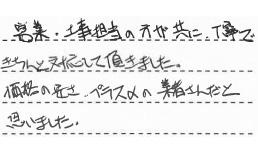 営業・工事担当の方が共に、丁寧で
きちんと対応して頂きました。
価格の安さ、プラスαの業者さんだと
思いました。